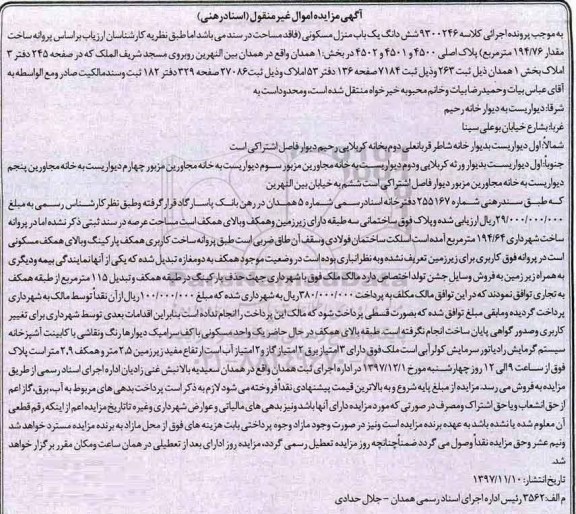 آگهی مزایده اموال غیر منقول (اسناد رهنی)
به موجب پرونده اجرائی کلاسه ۹۳۰۰۲۴۶ شش دانگ یک باب منزل مسکونی (فاقد مساحت در سند می باشد اما طبق نظریه کارشناسان ارزیاب براساس پروانه ساخت
مقدار ۱۹۴/۷۶ مترمربع) پلاک اصلی ۴۵۰۰ و ۴۵۰۱ و ۴۵۰۲ در بخش: ۱ همدان واقع در همدان بین النهرین روبروی مسجد شریف الملک که در صفحه ۲۴۵ دفتر ۳
املاک بخش ۱ همدان ذیل ثبت ۲۶۳ وذیل ثبت ۷۱۸۴ صفحه ۱۳۶ دفتر ۵۳ املاک وذیل ثبت ۲۷۰۸۶ صفحه ۳۲۹ دفتر ۱۸۲ ثبت وسندمالکیت صادر ومع الواسطه به
آقای عباس بیات وحمیدرضا بیات وخانم محبوبه خیرخواه منتقل شده است، ومحدوداست به
شرقا: دیواریست به دیوار خانه رحیم
غربا: بشارع خیابان بوعلی سینا
شمالاً: اول دیواریست بدیوار خانه شاطر قربانعلی دوم بخانه کربلایی رحیم دیوار فاصل اشتراکی است
جنوباً: اول دیواریست بدیوار ورثه کربلایی ودوم دیواریست به خانه مجاورین مزبور سوم دیواریست به خانه مجاورین مزبور چهارم دیواریست به خانه مجاورین مزبور پنجم
دیواریست به خانه مجاورین مزبور دیوار فاصل اشتراکی است ششم به خیابان بین النهرین
که طبق سندرهنی شماره ۲۵۵۱۶۷ دفترخانه اسنادرسمی شماره ۵ همدان در رهن بانک پاسارگاد قرار گرفته وطبق نظر کارشناس رسمی به مبلغ
۲۹/۰۰۰/۰۰۰/۰۰۰ ریال ارزیابی شده وپلاک فوق ساختمانی سه طبقه دارای زیرزمین وهمکف وبالای همکف است مساحت عرصه در سند ثبتی ذکر نشده اما در پروانه
ساخت شهرداری ۱۹۴/۶۴ مترمربع آمده است اسکلت ساختمان فولادی وسقف آن طاق ضربی است طبق پروانه ساخت کاربری همکف پارکینگ وبالای همکف مسکونی
است در پروانه فوق کاربری برای زیرزمین تعریف نشده وبه نظر انباری بوده است در وضعیت موجود همکف به دومغازه تبدیل شده که یکی از آنها نمایندگی بیمه ودیگری
به همراه زیر زمین به فروش وسایل جشن تولد اختصاص دارد مالک ملک فوق با شهرداری جهت حذف پارکینگ در طبقه همکف وتبدیل ۱۱۵ مترمربع از طبقه همکف
به تجاری توافق نمودند که در این توافق مالک مکلف به پرداخت ۳۸۰/۰۰۰/۰۰۰ ریال به شهرداری شده که مبلغ ۱۰۰/۰۰۰/۰۰۰ ریال از آن نقداً توسط مالک به شهرداری
پرداخت گردیده ومابقی مبلغ توافق شده که بصورت قسطی پرداخت شود که مالک این پرداخت را انجام نداده است بنابراین اقدامات بعدی توسط شهرداری برای تغییر
کاربری وصدور گواهی پایان ساخت انجام نگرفته است طبقه بالای همکف در حال حاضر یک واحد مسکونی با کف سرامیک دیوارها رنگ ونقاشی با کابینت آشپزخانه
سیستم گرمایش رادیاتور سرمایش کولر آبی است ملک فوق دارای ۳ امتیاز برق ۲ امتیاز گاز و ۲ امتیاز آب است ارتفاع مفید زیرزمین ۲،۵ متر وهمکف ۲،۹ متر است پلاک
فوق از ساعت ۹ الی ۱۲ روز چهارشنبه مورخ ۱۳۹۷/۱۲/۱ در اداره اجرای ثبت همدان واقع در همدان سعیدیه بالا نبش غنی زادیان اداره اجرای اسناد رسمی از طریق
مزایده به فروش می رسد. مزایده از مبلغ پایه شروع و به بالاترین قیمت پیشنهادی نقداً فروخته می شود لازم به ذکر است پرداخت بدهی های مربوط به آب، برق، گاز اعم
از حق انشعاب ویا حق اشتراک ومصرف در صورتی که مورد مزایده دارای آنها باشد ونیز بدهی های مالیاتی و عوارض شهرداری وغیره تا تاریخ مزایده اعم از اینکه رقم قطعی
آن معلوم شده یا نشده باشد به عهده برنده مزایده است ونیز در صورت وجود مازاد وجوه پرداختی بابت هزینه های فوق از محل مازاد به برنده مزایده مسترد خواهد شد
ونیم عشر وحق مزایده نقداً وصول می گردد ضمناً چنانچه روز مزایده تعطیل رسمی گردد، مزایده روز اداری بعد از تعطیلی در همان ساعت ومکان مقرر برگزار خواهد
شد.
تاریخ انتشار: ۱۳۹۷/۱۱/۱۰
م الف: ۳۵۶۲ رئیس اداره اجرای اسناد رسمی همدان - جلال حدادی